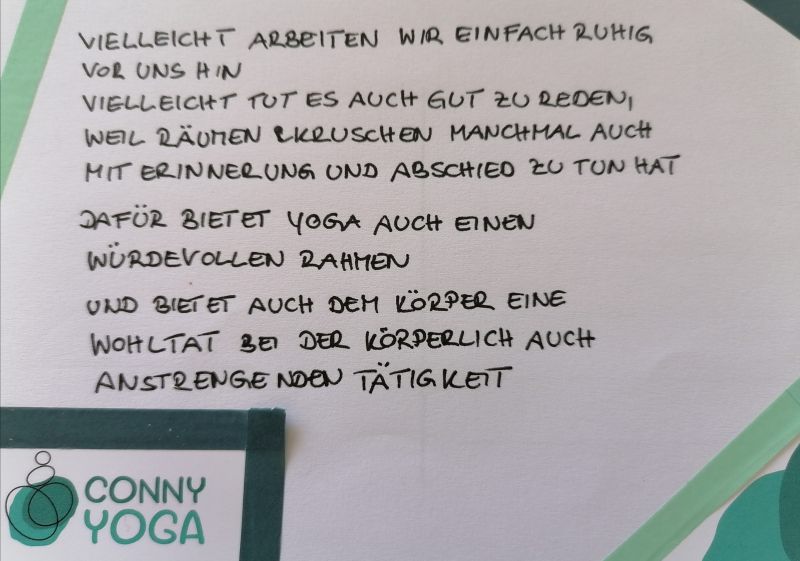 VIELLEICHT ARBEITEN WIR EINFACH RUHIG
VOR UNS HIN
VIELLEICHT TUT ES AUCH GUT ZU REDEN,
WEIL RÄUMEN & KRUSCHEN MANCHMAL AUCH
MIT ERINNERUNG UND ABSCHIED ZU TUN HAT
DAFÜR BIETET YOGA AUCH EINEN
WÜRDEVOLLEN RAHMEN
UND BIETET AUCH DEM KÖRPER EINE
WOHLTAT BEI DER KÖRPERLICH AUCH
ANSTRENGENDEN TÄTIGKEIT
CONNY
YOGA